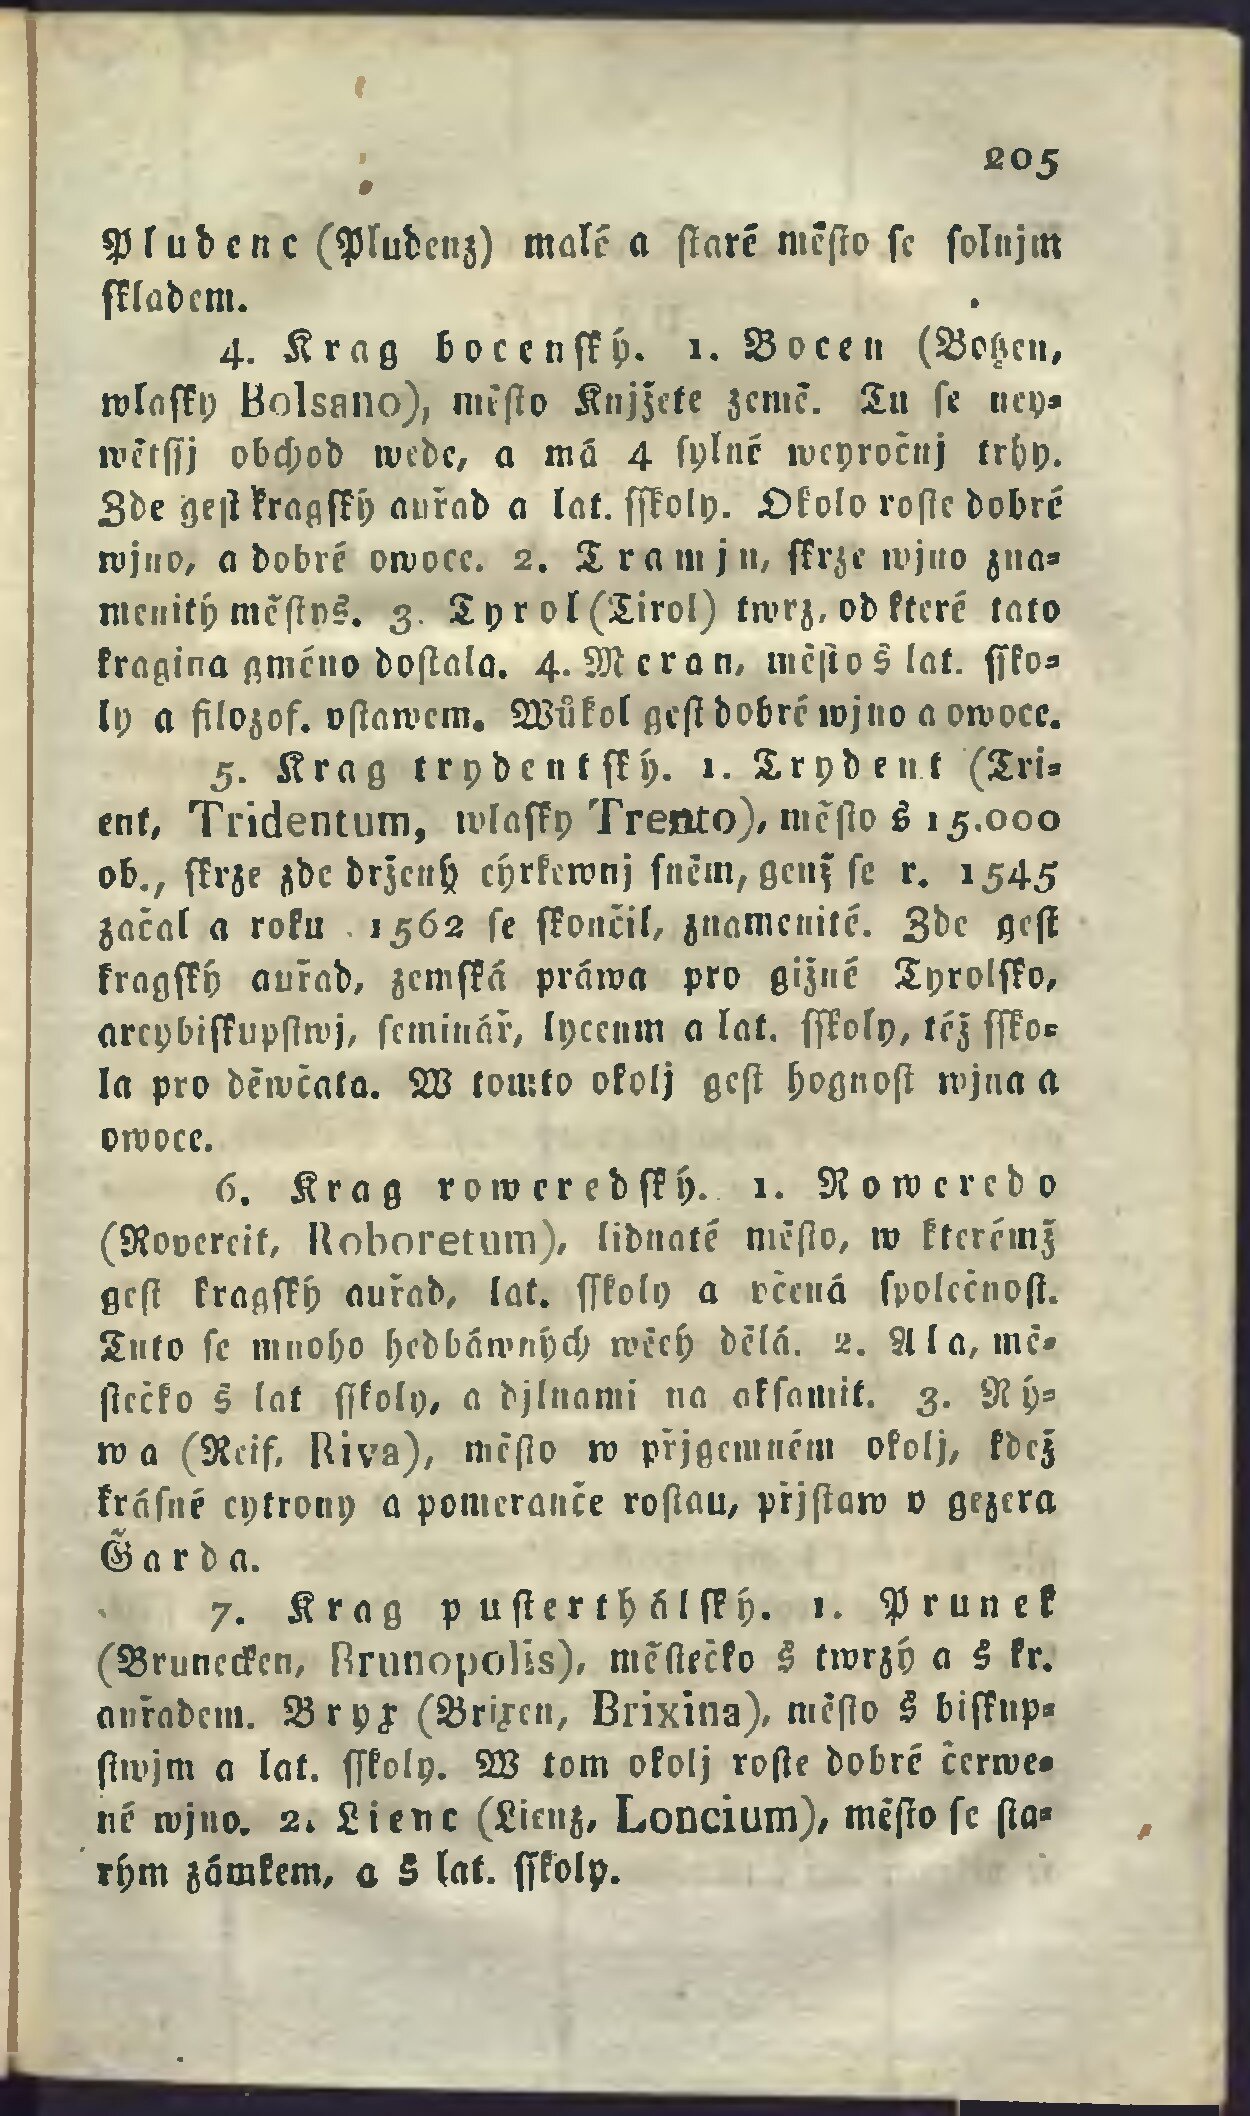 205
Pludenc (Pludenz) malé a ſtaré město ſe ſolnjm
ſkladem.
4. Krag bocenſký. 1. Bocen (Botzen,
wlaſky Bolsano), město Knjžete země. Tu ſe ney⸗
wětſſj obchod wede, a má 4 ſylné weyročnj trhy.
Zde geſt kragſký auřad a lat. ſſkoly. Okolo roſte dobré
wjno, a dobré owoce. 2. Tramjn, ſkrze wjno zna⸗
menitý měſtys. 3. Tyrol (Tirol) twrz, od které tato
kragina gméno doſtala. 4. Meran, město s lat. ſſko⸗
ly a filozof. vſtawem. Wůkol geſt dobré wjno a owoce.
5. Krag trydentſký. 1. Trydent (Tri⸗
ent, Tridentum, wlaſky Trento), město s 15.000
ob., ſkrze zde držený cýrkewnj ſněm, genž ſe r. 1545
začal a roku 1562 ſe ſkončil, znamenité. Zde geſt
kragſký auřad, zemſká práwa pro gižné Tyrolſko,
arcybiſkupſtwj, ſeminář, lyceum a lat. ſſkoly, též ſſko⸗
la pro děwčata. W tomto okolj geſt hognoſt wjna a
owoce.
6. Krag roweredſký. 1. Roweredo
(Rovereit, Roboretum), lidnaté město, w kterémž
geſt kragſký auřad, lat. ſſkoly a včená ſpolečnoſt.
Tuto ſe mnoho hedbáwných wěcý dělá. 2. Ala, mě⸗
ſtečko s lat ſſkoly, a djlnami na akſamit. 3. Rý⸗
wa (Reif, Riva), město w přjgemném okolj, kdež
kráſné cytrony a pomeranče roſtau, přjſtaw v gezera
Ǧarda.
7. Krag puſterthálſký. 1. Prunek
(Brunecken, Brunopolis), měſtečko s twrzý a s kr.
auřadem. Bryx (Brixen, Brixina), město s biſkup⸗
ſtwjm a lat. ſſkoly. W tom okolj roſte dobré čerwe⸗
né wjno. 2. Lienc (Lienz, Loncium), město ſe ſta⸗
rým zámkem, a s lat. ſſkoly.